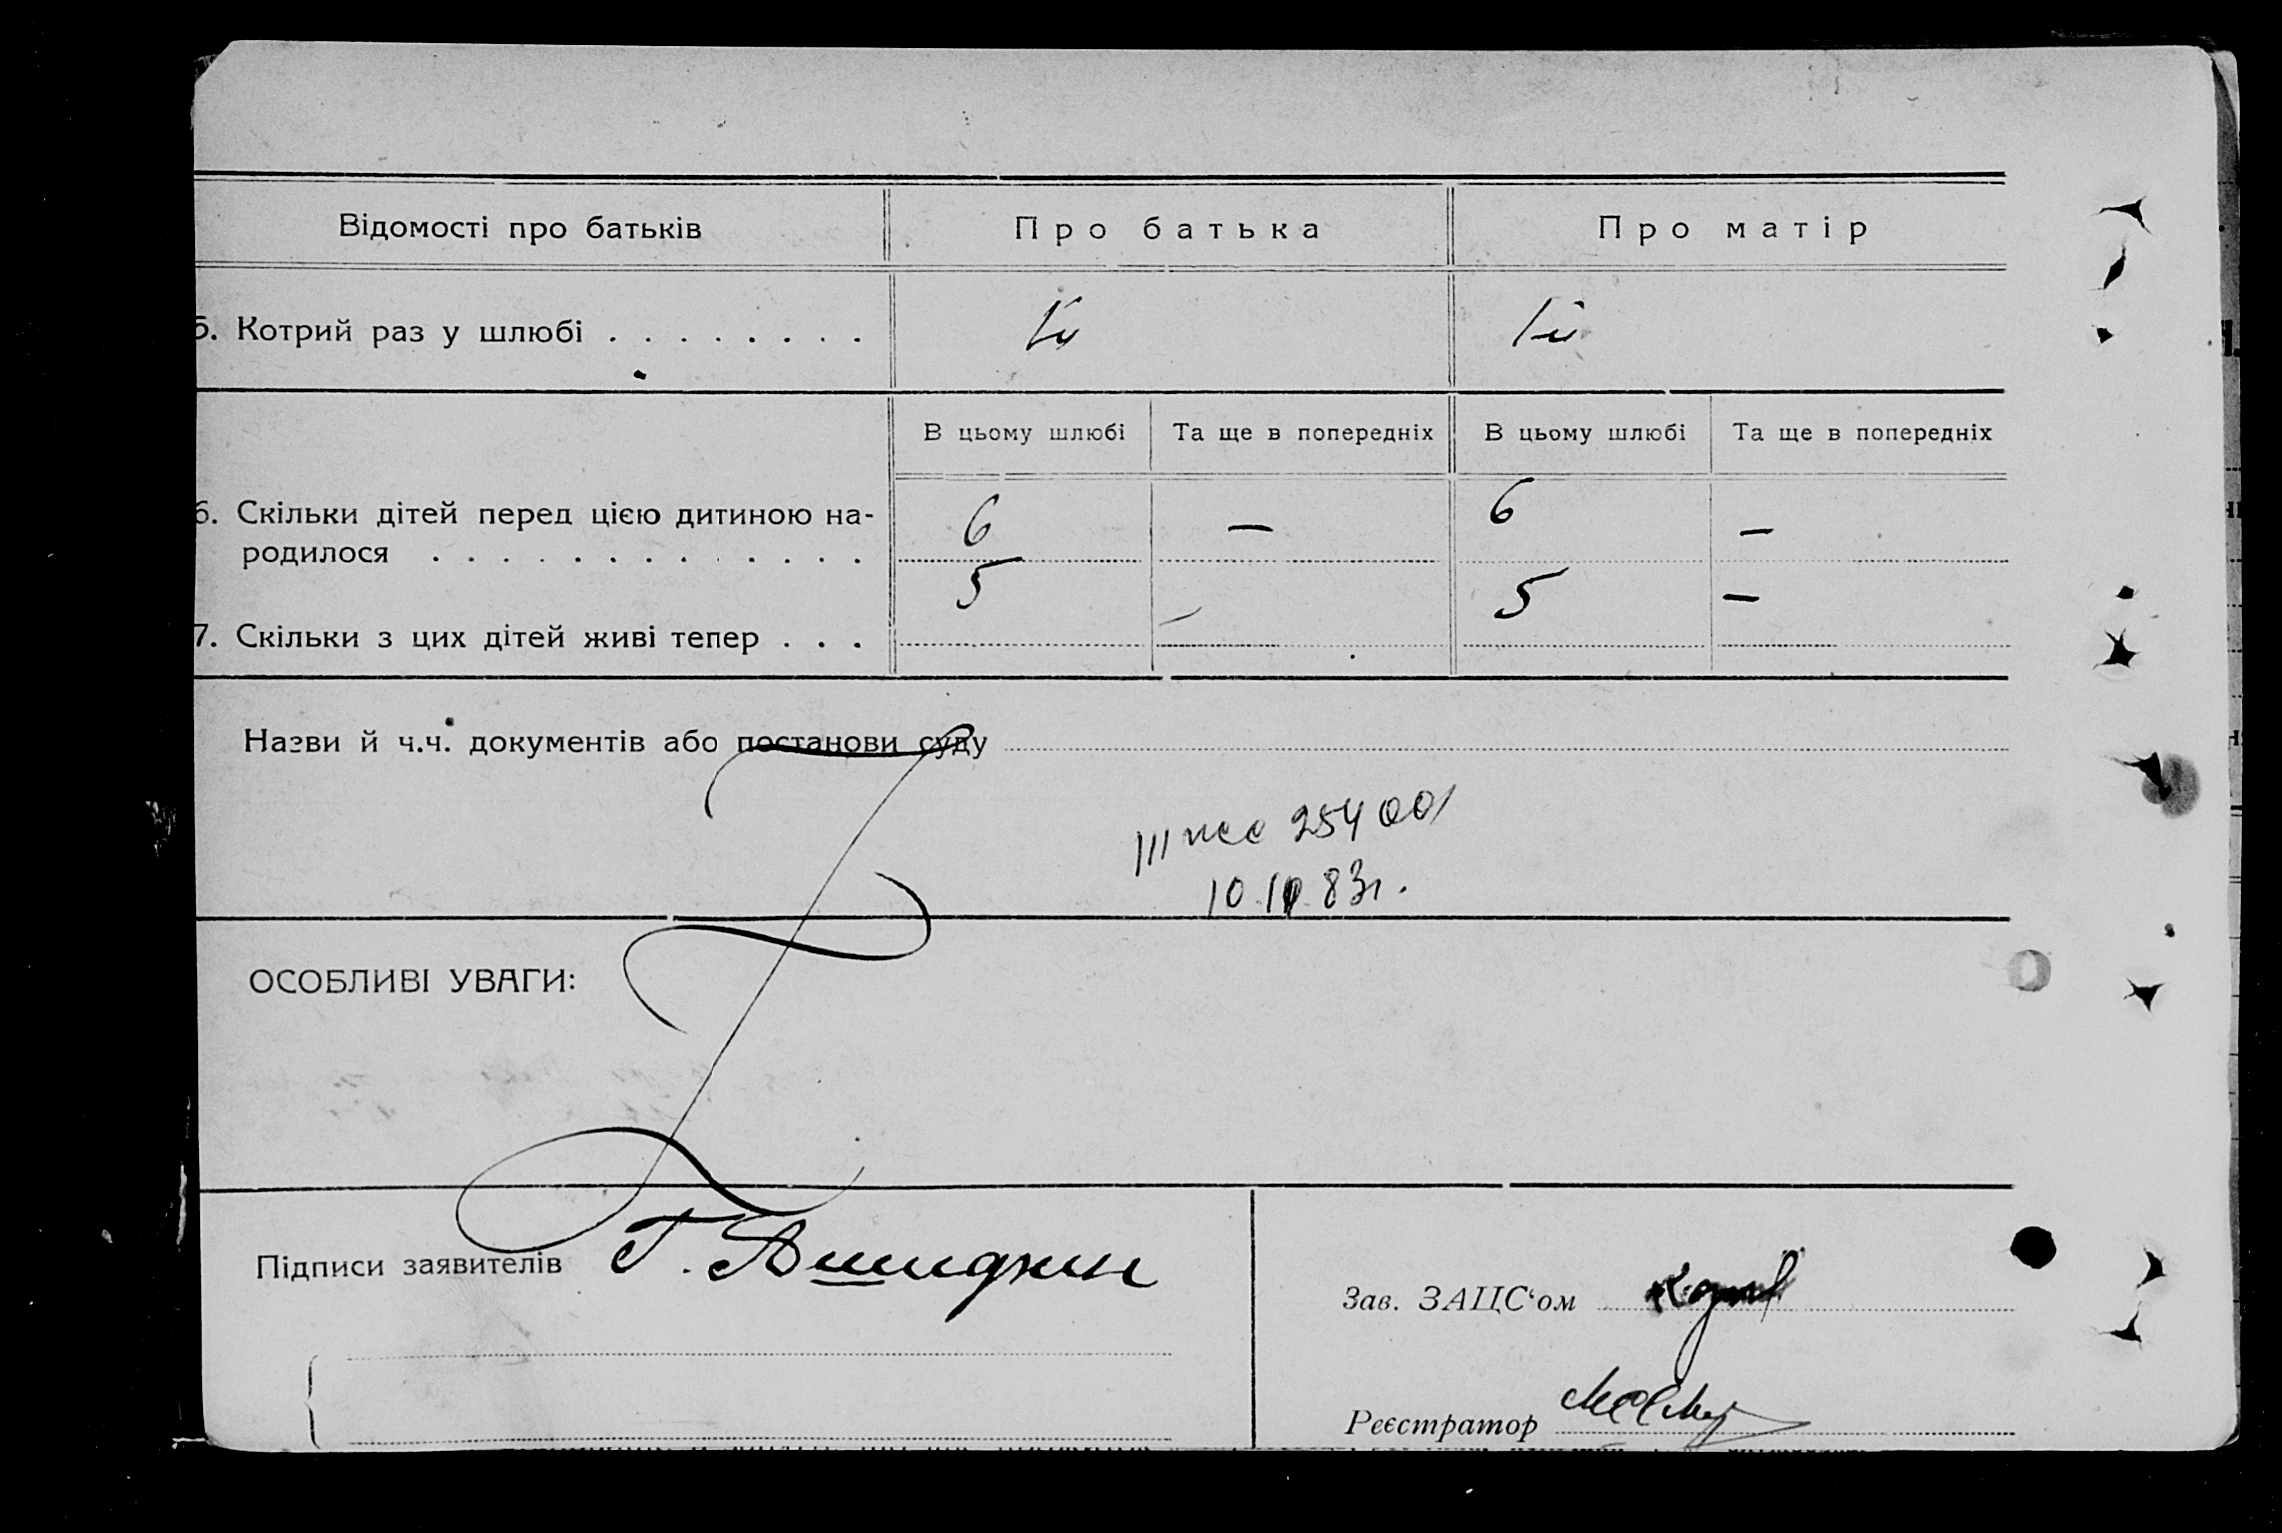 Відомості про батьків Про батька Про матір
5. Котрий раз у шлюбі . . . . . . . . Iй Iй
В цьому шлюбі Та ще в попередніх В цьому шлюбі Та ще в попередніх
6. Скільки дітей перед цією дитиною на-
родилося . . . . . . . . . . . 6 — 6 —
7. Скільки з цих дітей живі тепер . . . 5 – 5 —
Назви й ч.ч. документів або постанови суду
254001
10 83г.
ОСОБЛИВІ УВАГИ:
Підписи заявителів Г.
Зав. ЗАЦС‘ом
Реєстратор